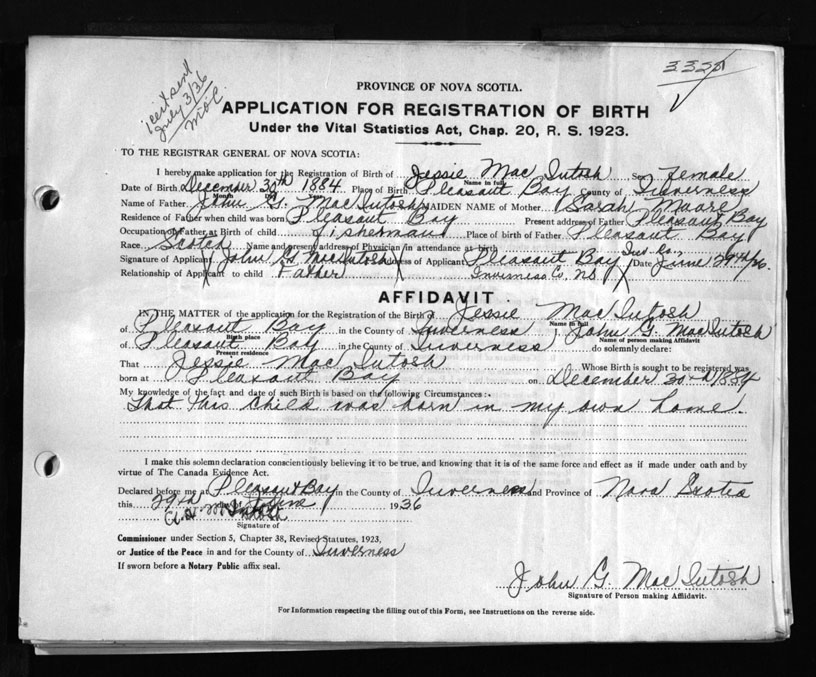 1 cert sent
July 3/36
3320
PROVINCE OF NOVA SCOTIA.
APPLICATION FOR REGISTRATION OF BIRTH
Under the Vital Statistics Act, Chap. 20, R. S. 1923.
TO THE REGISTRAR GENERAL OF NOVA SCOTIA:
I hereby make application for the Registration of Birth of Jessie Mac Intosh Sex Female
Name in full
Date of Birth December 30th 1884 Place of Birth Pleasant Bay County of Inverness
Month Day Year
Name of Father John G. MacIntosh MAIDEN NAME of Mother Sarah Moore
Residence of Father when child was born Pleasant Bay Present address of Father Pleasant Bay
Occupation of Father at Birth of child fisherman Place of birth of Father Pleasant Bay
Race Scotch Name and present address of Physician in attendance at birth Inv. Co.
Signature of Applicant John G MacIntosh Address of Applicant Pleasant Bay Date June 29th/36.
Relationship of Applicant to child Father Inverness Co. NS
AFFIDAVIT
IN THE MATTER of the application for the Registration of the Birth of Jessie Mac Intosh
Name in full
of Pleasant Bay in the County of Inverness I, John G. MacIntosh
Birth place Name of person making Affidavit
of Pleasant Bay in the County of Inverness do solemnly declare:
Present residence
That Jessie Mac Intosh Whose Birth is sought to be registered was
born at Pleasant Bay on December 30th 1884
My knowledge of the fact and date of such Birth is based on the following Circumstances:
That this child was born in my own home.
I make this solemn declaration conscientiously believing it to be true, and knowing that it is of the same force and effect as if made under oath and by
virtue of The Canada Evidence Act.
Declared before me at Pleasant Bay in the County of Inverness and Province of Nova Scotia
this 29th day of June 1936
McIntosh
Signature of
Commissioner under Section 5, Chapter 38, Revised Statutes, 1923,
or Justice of the Peace in and for the County of Inverness
If sworn before a Notary Public affix seal.
John G. Mac Intosh
Signature of Person making Affidavit.
For Information respecting the filling out of this Form, see Instructions on the reverse side.